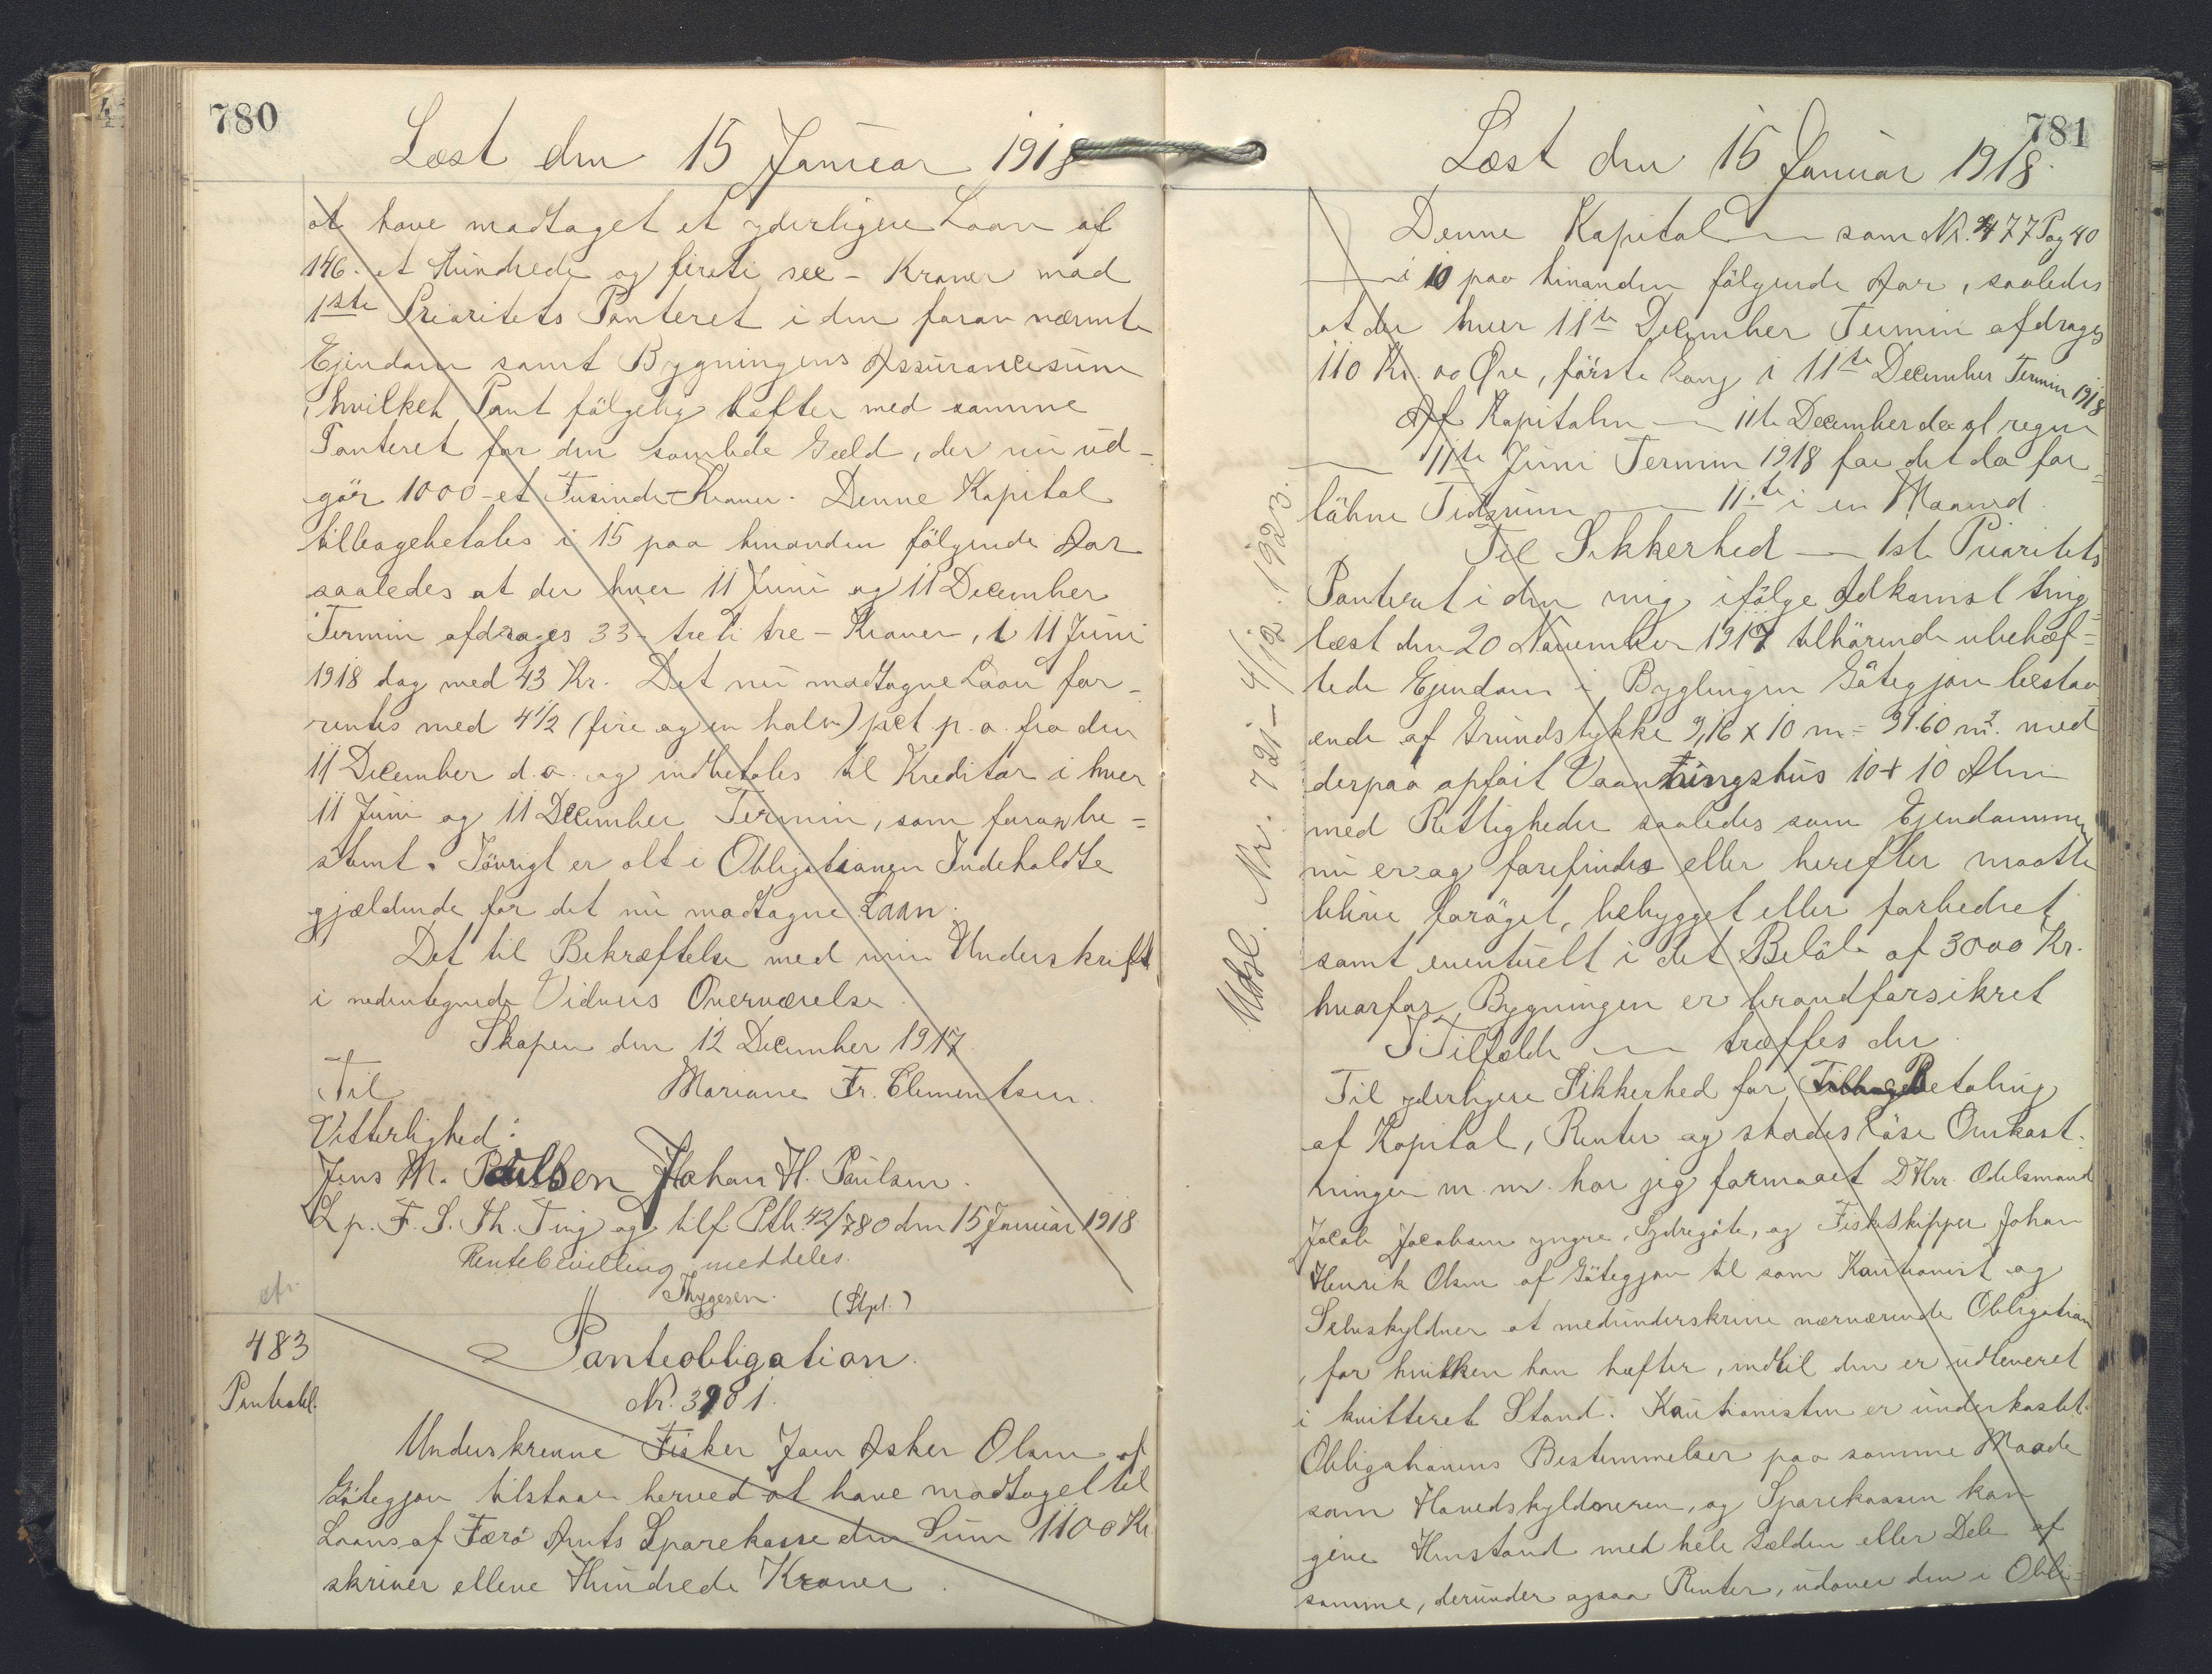 780
Læst den 15 Januar 1918
at have modtaget et yderligere Laan af
146 - et Hundrede og fireti sec - Kroner mod
1ste Prioritets Panteret i den foran nævnte
Ejendom samt Bygningens Assurancesum
, hvilket Pant følgelig hæfter med samme
Panteret for den samlede Gæld, der nu ud-
gør 1000 - et Tusinde - Kroner. Denne Kapital
tilbagebetales i 15 paa hinanden følgende Aar
saaledes at der hver 11 Juni og 11 December
Termin afdrages 33 - treti tre - Kroner, i 11 Juni
1918 dog med 43 Kr. Det nu modtagne Laan for-
rentes med 4½ (fire og en halv) pct p. a. fra den
11 December d. a. og indbetales til Kreditor i hver
11 Juni og 11 December Termin, som foran be=
stemt. Iøvrigt er alt i Obligationen Indeholdte
gjældende for det nu modtagne Laan.
Det til Bekræftelse med min Underskrift
i nedentegnede Vidners Overværelse.
Skopen den 12 December 1917
Til Mariane Fr. Clementsen.
Vitterlighed:
Jens M. Poulsen Johan H. Paulsen.
L p. F. S. Th. Ting og tilf Ptb. 42/780 den 15 Januar 1918
Rentebevilling meddeles.
Thygesen. (Stpl.)
cfr.
483 Panteobligation.
Panteobl. Nr. 3981.
Underskrevne Fisker Joen Asker Olsen af
Gøtegjov tilstaar herved at have modtaget til
Laans af Færø Amts Sparekasse den Sum 1100 Kr.
skriver elleve Hundrede Kroner.
781
Læst den 15 Januar 1918.
Denne Kapital — som Nr. 477 Pag 40
— i 10 paa hinanden følgende Aar, saaledes
at der hver 11te December Termin afdrages
110 Kr. 00 Øre, første Gang i 11te December Termin 1918
Af Kapitalen — 11te December d a at regne
— 11te Juni Termin 1918 for det da for=
løbne Tidsrum — 11te i en Maaned
Til Sikkerhed — 1ste Prioritets
Panteret i den mig ifølge Adkomst ting=
læst den 20 November 1917 tilhørende ubehæf=
tede Ejendom i Bygdingen Gøtegjov bestaa
ende af Grundstykke 9,16 x 10 m = 91.60 m². med
derpaa opført Vaaningshus 10 + 10 Alen
med Rettigheder saaledes som Ejendommen
nu er og forefindes eller herefter maatte
blive forøget, bebygget eller forbedret
samt eventuelt i det Beløb af 3000 Kr.
hvorfor Bygningen er brandforsikret
I Tilfælde — træffes der.
Til yderligere Sikkerhed for Tilbagebetaling
af Kapital, Renter og skadesløse Omkost-
ninger m. m. har jeg formaaet D'Hrr. Odelsmand
Jacob Jacobsen yngre, Sydregøte, og Fiskeskipper Johan
Henrik Olsen af Gøtegjov til som Kautionist og
Selvskyldner at medunderskrive nærværende Obligation
, for hvilken han hæfter, indtil den er udleveret
i kvitteret Stand. Kautionisten er underkastet
Obligationens Bestemmelser paa samme Maade
som Hovedskyldneren, og Sparekassen kan
give Henstand med hele Gælden eller Dele af
samme, derunder ogsaa Renter, udover den i Obli=
Udsl. Nr. 721 - 4/12. 1923.